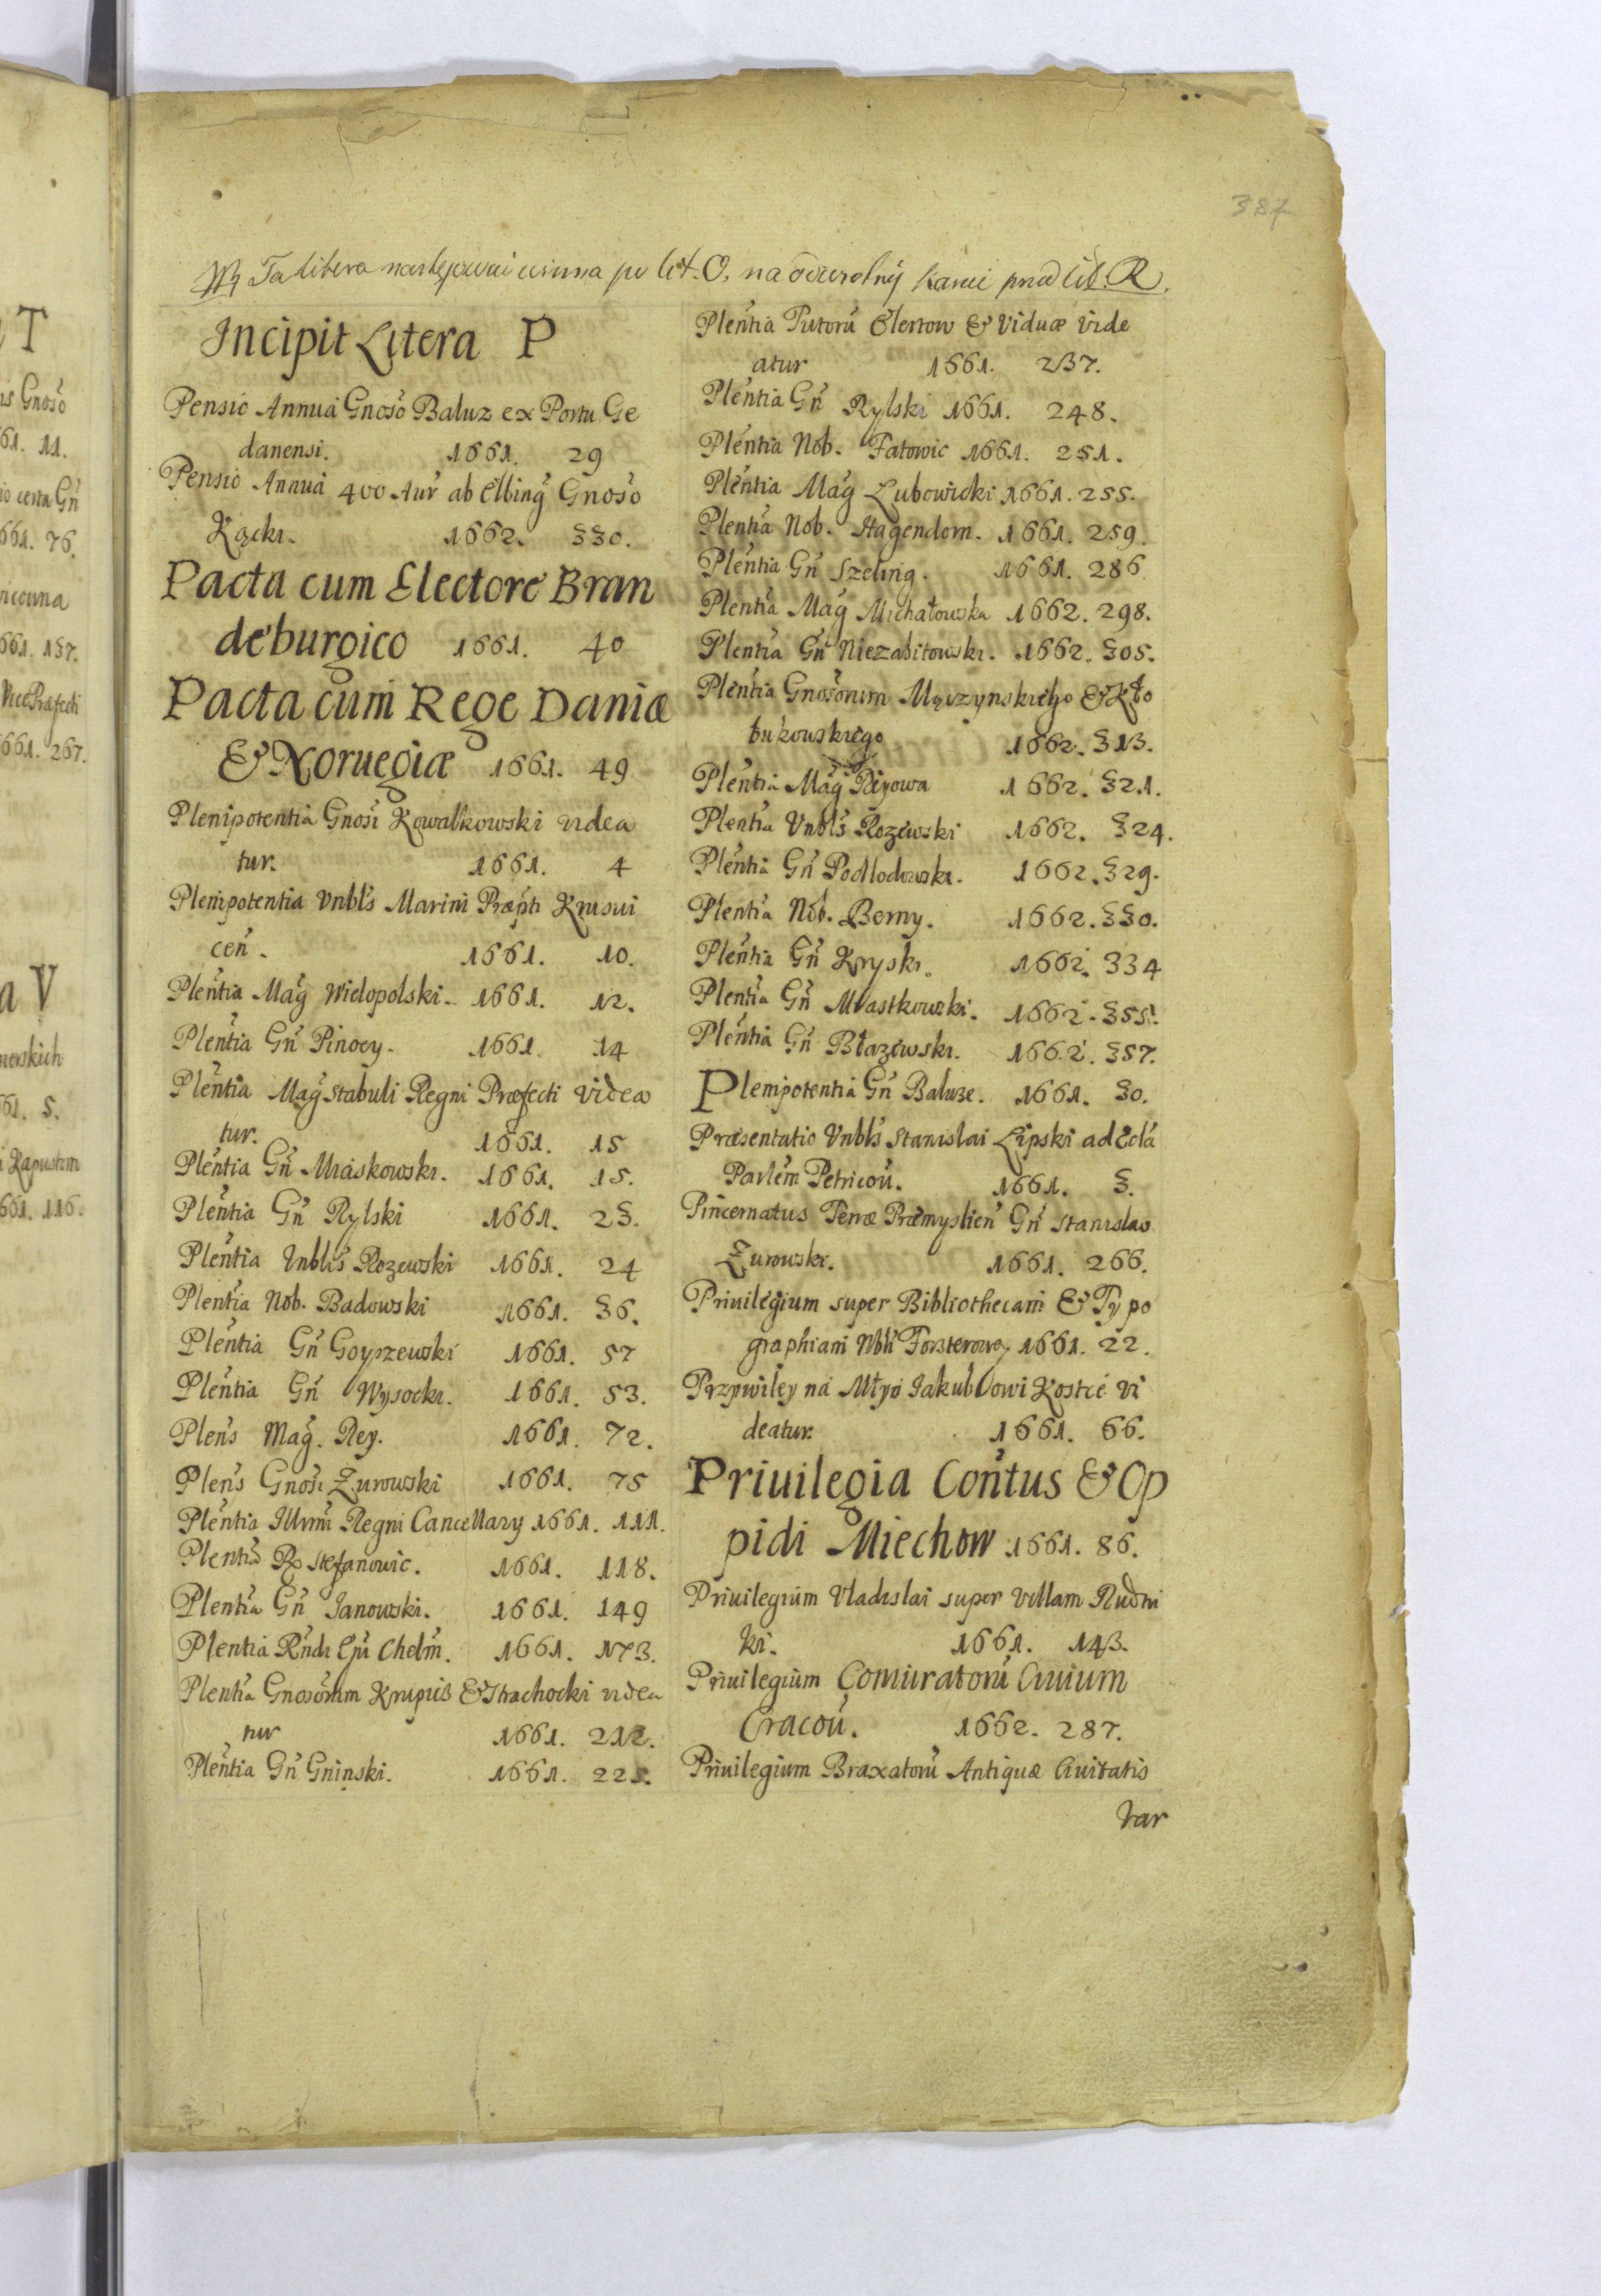 387
Ta litera następować winna po lit. O, na odwrotnéj karcie przed lit. R.
Incipit Litera P
Pensio Annua Gnoso Baluz ex Portu Ge
danensi. 1661. 29
Pensio Annua 400 Aur ab Elbing Gnoso
Kącki. 1662. 330.
Pacta cum Electore Bran
deburgico 1661. 40
Pacta cum Rege Daniæ
& Noruegiæ 1661. 49
Plenipotentia Gnosi Kowalkowski videa
tur. 1661. 4
Plenipotentia Vnbls Marini Præpti Krusui
cen. 1661. 10.
Plentia Mag Wielopolski. 1661. 12.
Plentia Gn Pinocy. 1661. 14
Plentia Mag Stabuli Regni Præfecti videa
tur. 1661. 15
Plentia Gn Miaskowski. 1661. 15.
Plentia Gn Rylski 1661. 23.
Plentia Vnblis Rozewski 1661. 24
Plentia Nob. Badowski 1661. 36.
Plentia Gn Goyszewski 1661. 57
Plentia Gn Wysocki. 1661. 53.
Plens Mag. Rey. 1661. 72.
Plens Gnosi Żurowski 1661. 75
Plentia Illmi Regni Cancellary 1661. 111.
Plentia R Stefanowic. 1661. 118.
Plentia Gn Janowski. 1661. 149
Plentia Rndi Epi Chelm. 1661. 173.
Plentia Gnosorum Krupis & Strachocki videa
tur 1661. 212.
Plentia Gn Gninski. 1661. 225.
Plentia Tutoru Elertow & Viduæ vide
atur 1661. 237.
Plentia Gn Rylski 1661. 248.
Plentia Nob. Fatowic 1661. 251.
Plentia Mag Lubowicki 1661. 255.
Plentia Nob. Hagendorn. 1661. 259.
Plentia Gn Szeling. 1661. 286
Plentia Mag Michałowska 1662. 298.
Plentia Gn Niezabitowski. 1662. 305.
Plentia Gnosorum Męczynskiego & Kło
bukowskiego 1662. 313.
Plentia Mag Reyowa 1662. 321.
Plentia Vnbls Rozewski 1662. 324.
Plentia Gn Podlodowski. 1662. 329.
Plentia Nob. Berny. 1662. 330.
Plentia Gn Kryski. 1662. 334
Plentia Gn Miastkowski. 1662. 355.
Plentia Gn Błazewski. 1662. 357.
Plenipotentia Gn Baluze. 1661. 30.
Præsentatio Vnbls Stanislai Lipski ad Ecla
Parlem Petricou. 1661. 3.
Pincernatus Terræ Præmyslien Gn Stanislao
Żurowski. 1661. 266.
Priuilegium super Bibliothecam & Typo
graphiam Nbli Forsterowey 1661. 22.
Przywiley ná Młyn Jakubowi Kostce vi
deatur. 1661. 66.
Priuilegia Contus & Op
pidi Miechow 1661. 86.
Priuilegium Vladislai super Villam Rudni
ki. 1661. 143.
Priuilegium Comuratoru Ciuium
Cracou. 1662. 287.
Priuilegium Braxatoru Antiquæ Ciuitatis
Var
T
11.
76.
137.
267.
V
5.
116.